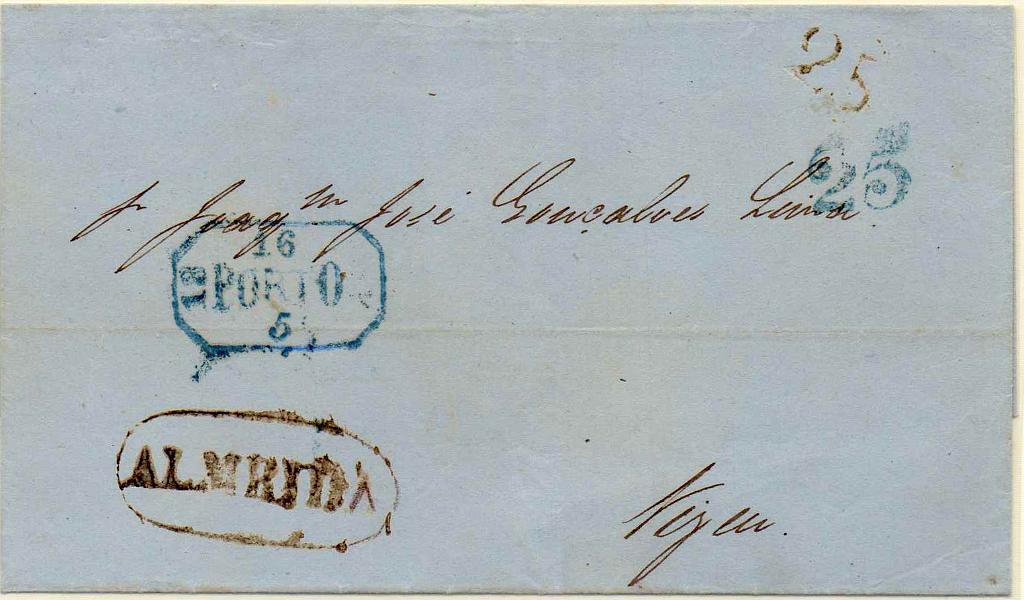 25
25
pr Joaqm José Gonçalves Lima
16
18 PORTO
5
ALMEIDA
Vizeu.